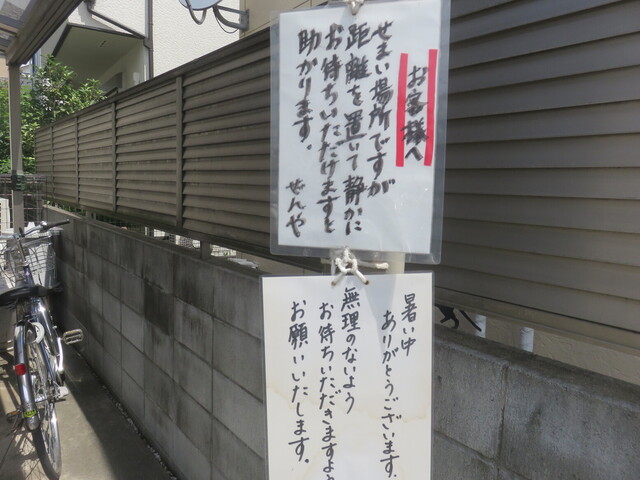 お客様へ
せまい場所ですが
距離を置いて静かに
お待ちいただけますと
助かります。
ぜんや
暑い中
ありがとうございます。
無理のないよう
お待ちいただきますよう
お願いいたします。